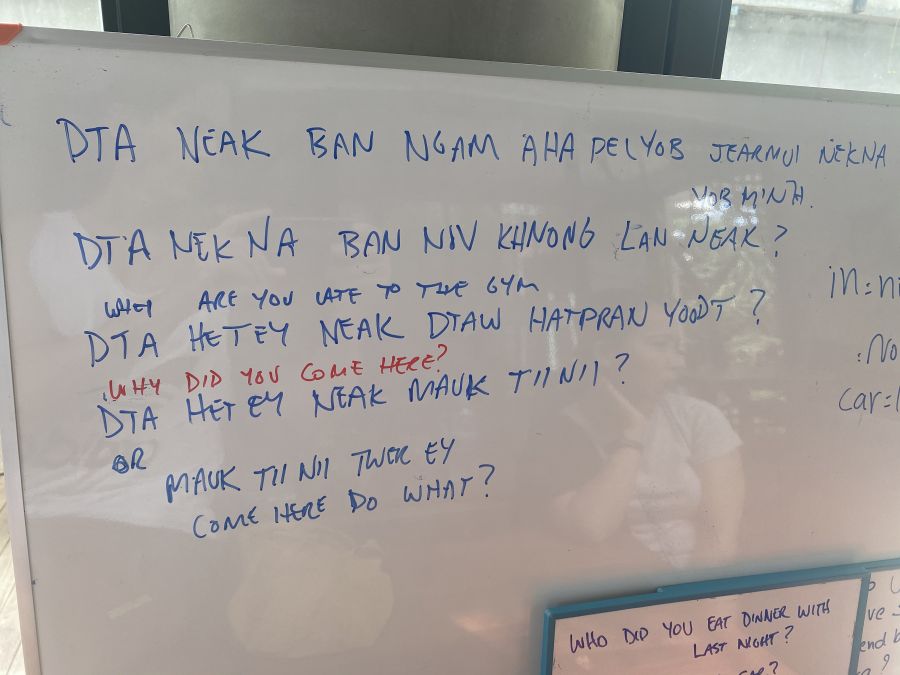 DTA NEAK BAN NGAM AHA PELYOB JEARMUI NEKNA
YOB MINH.
DTA NEK NA BAN NIV KHNONG LAN NEAK?
WHEY ARE YOU LATE TO THE GYM
DTA HETEY NEAK DTAW HATPRAN YOODT?
WHY DID YOU COME HERE?
DTA HETEY NEAK MAUK TII NII?
OR
MAUK TII NII TWER EY
COME HERE DO WHAT?
in=ni
:No
car=l
WHO DID YOU EAT DINNER WITH
LAST NIGHT?